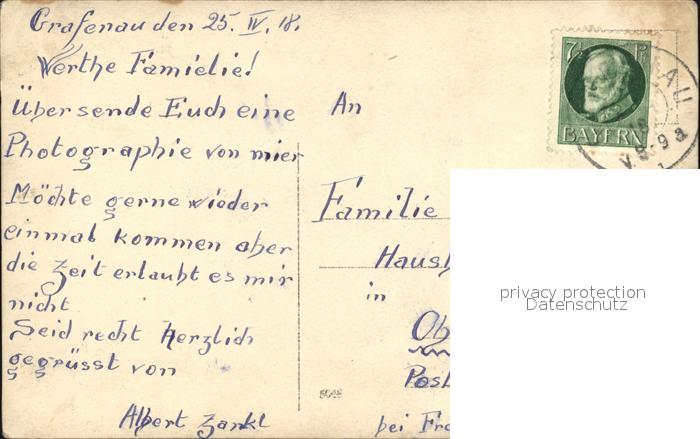 Grafenau den 25. IV. 18.
Werthe Familie!
Übersende Euch eine
Photographie von mier
Möchte gerne wieder
einmal kommen aber
die Zeit erlaubt es mir
nicht
Seid recht herzlich
gegrüsst von
Albert Zankl
An
Familie
Haush
in
Ob
Post
bei Fre
7 Pf
BAYERN
AU
V. 8-9 a
privacy protection
Datenschutz